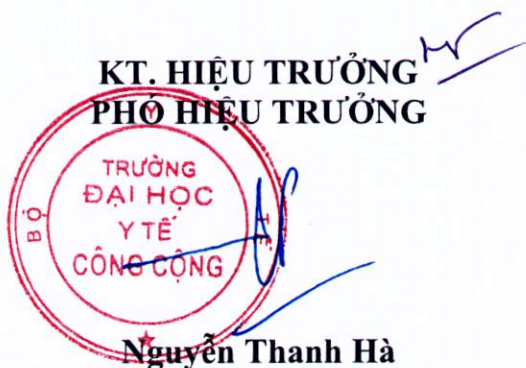 KT. HIỆU TRƯỞNG
PHÓ HIỆU TRƯỞNG
BỘ Y TẾ
TRƯỜNG
ĐẠI HỌC
Y TẾ
CÔNG CỘNG
Nguyễn Thanh Hà